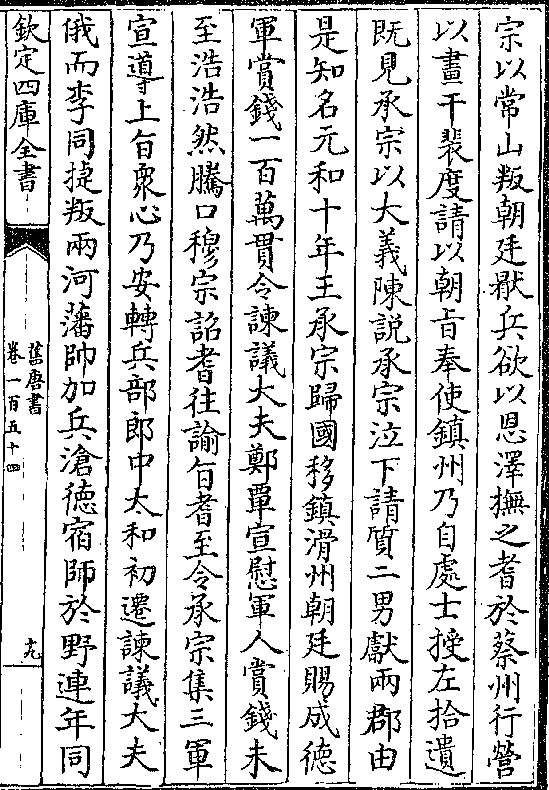 宗以常山叛朝廷厭兵欲以恩澤撫之耆於蔡州行營
以畫干裴度請以朝旨奉使鎮州乃自處士授左拾遺
既見承宗以大義陳説承宗泣下請質二男獻兩郡由
是知名元和十年王承宗歸國移鎮滑州朝廷賜成德
軍賞錢一百萬貫令諫議大夫鄭覃宣慰軍人賞錢未
至浩浩然騰口穆宗詔耆往諭旨耆至令承宗集三軍
宣導上旨衆心乃安轉兵部郎中太和初遷諫議大夫
俄而李同捷叛兩河藩帥加兵滄德宿師於野連年同
欽定四庫全書
舊唐書
卷一百五十四
九